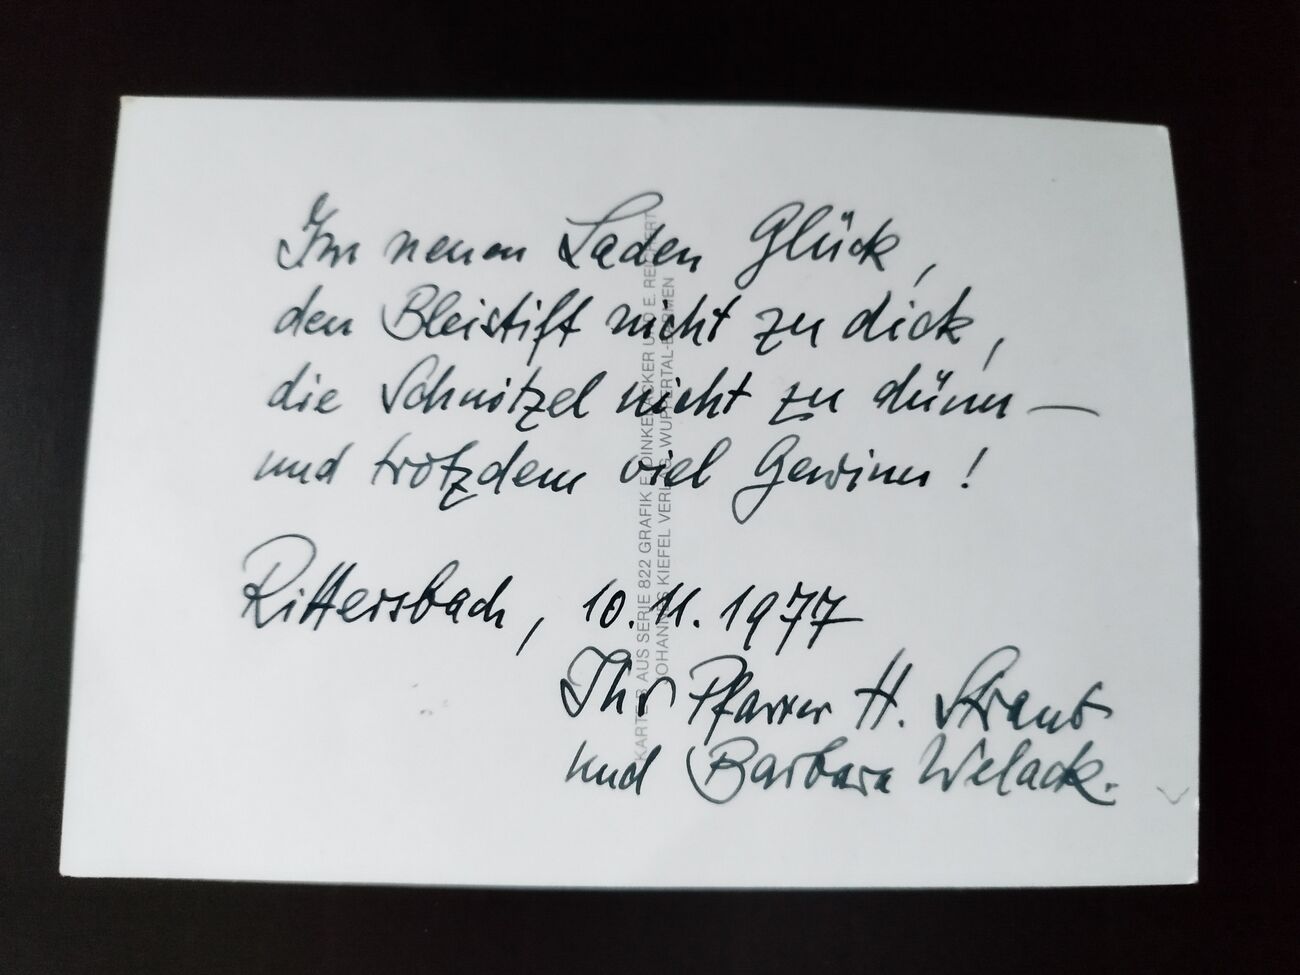 Im neuen Laden Glück,
den Bleistift nicht zu dick,
die Schnitzel nicht zu dünn —
und trotzdem viel Gewinn!
Rittersbach, 10. 11. 1977
Ihr Pfarrer H. Straub
und Barbara Welack.
KARTE AUS SERIE 822 GRAFIK E. DINKELACKER UND E. REICHERT
JOHANNES KIEFEL VERLAG, WUPPERTAL-BARMEN